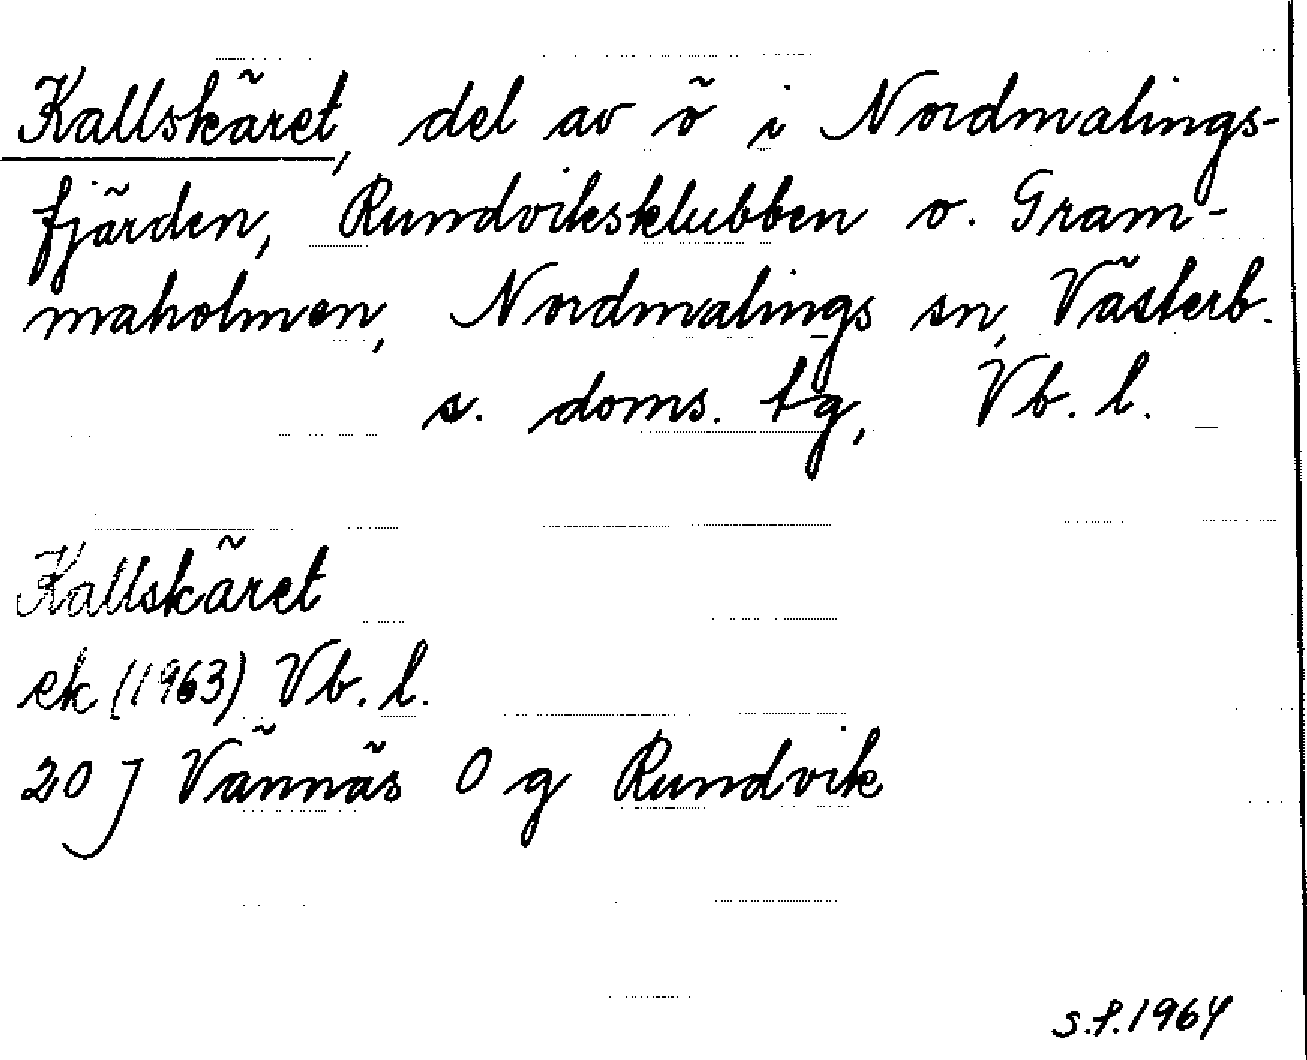 Kallskäret, del av ö i Nordmalings-
fjärden, Rundviksklubben o. Gram-
maholmen, Nordmalings sn, Västerb.
s. doms. tg, Vb. l.
Kallskäret
ek (1963) Vb. l.
20 J Vännäs 0 g Rundvik
S.f. 1964